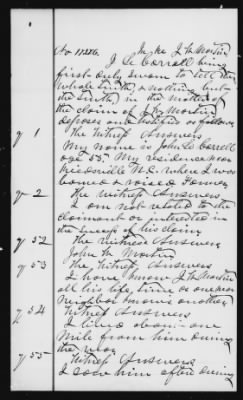 No 11286 In Re J W Martin
J L Correll being
first duly sworn to tell the
whole truth, & nothing but
the truth, in the matter of
the claim of J W Martin
deposes and testifies as follows
q 1 The Witness Answers
My name is John L Correll
age 53. My residence near
N.C. where I was
borned & raised Farmer
q 2 The Witness Answers
I am not related to the
claimant or interested in
the success of his claim
q 52 The Witness Answers
John W Martin
q 53 The Witness Answers
I have know J W Martin
all his life, time as one near
Neighbor knows another
q 54 Witness Answers
I lived about one
mile from him during
the war
q 55 Witness Answers
I saw him often during